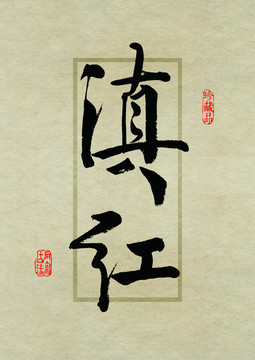 滇红
珍藏品